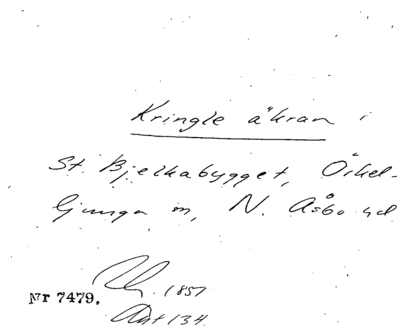 Kringle åkran i
St. Bjelkabygget, Örkel-
ljunga sn, N. Åsbo hd
1857
Nr 7479.
Akt 134